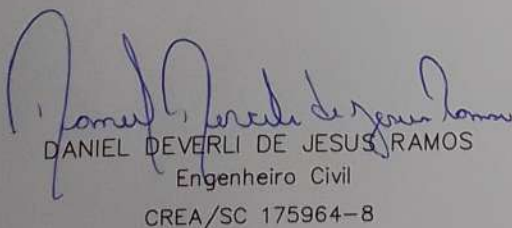 Daniel Deverli de Jesus Ramos
DANIEL DEVERLI DE JESUS RAMOS
Engenheiro Civil
CREA/SC 175964-8